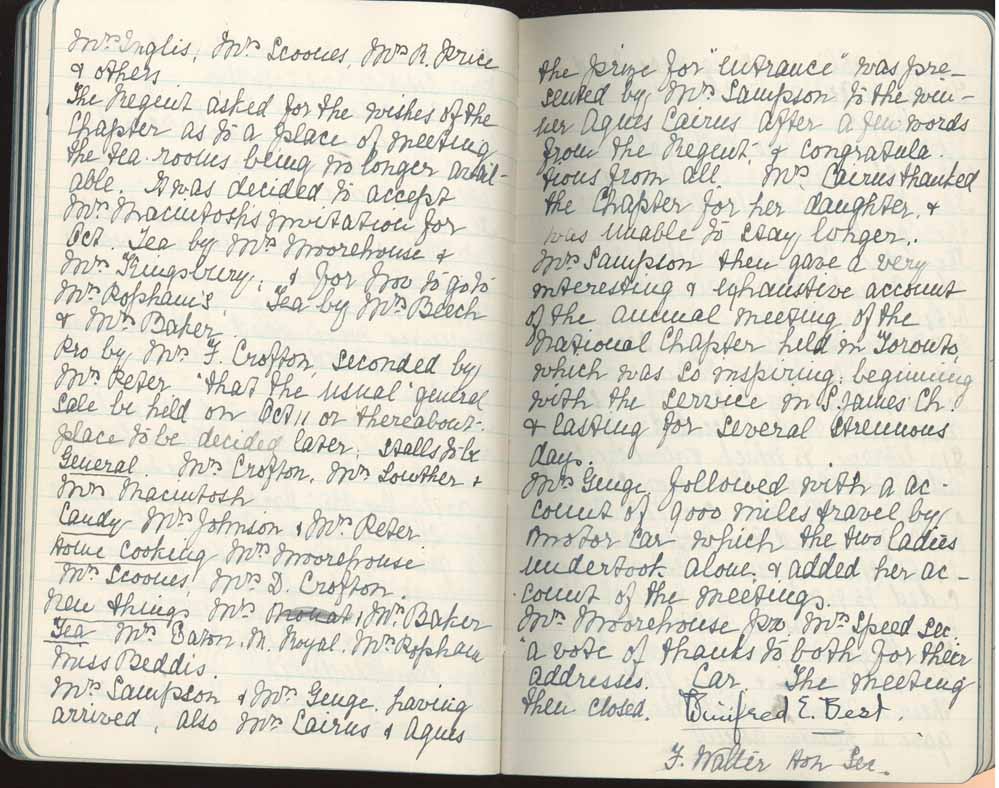 Mrs Inglis, Mrs Scoones, Mrs R. Price
& others
The Regent asked for the wishes of the
Chapter as to a place of meeting
the tea-rooms being no longer avail-
able. It was decided to accept
Mrs Macintoshs invitation for
Oct Tea by Mrs Moorehouse &
Mrs Kingsbury, & for Nov to go to
Mrs Popham's Tea by Mrs Beech
& Mrs Baker.
Pro by Mrs F. Crofton, seconded by
Mrs Peter "that the usual general
sale be held on Oct 11 or thereabout-
place to be decided later, stalls to be
General Mrs Crofton, Mrs Lowther &
Mrs Macintosh
Candy Mrs Johnson & Mrs Peter
Home Cooking Mrs Moorehouse
Mrs Scoones, Mrs D. Crofton.
New things Mrs & Mrs Baker
Tea Mrs Baron, M. Royal. Mrs Popham
Miss Beddis.
Mrs Sampson & Mrs Genge having
arrived, also Mrs Cairns & Agnes
the prize for "entrance" was pre-
sented by Mrs Sampson to the win-
ner Agnes Cairns after a few words
from the Regent & congratula-
tions from all. Mrs Cairns thanked
the Chapter for her daughter, &
was unable to stay longer.
Mrs Sampson then gave a very
interesting & exhaustive account
of the annual meeting of the
National Chapter held in Toronto,
which was so inspiring, beginning
with the service in S. James' Ch.
& lasting for several strenuous
days.
Mrs Genge followed with a ac-
count of 9000 miles travel by
motor car which the two ladies
undertook alone, & added her ac-
count of the meetings.
Mrs Moorehouse pro. Mrs Speed sec.
"a vote of thanks to both for their
addresses. Car The meeting
then closed. Winifred E. Best.
F. Walter Hon Sec.